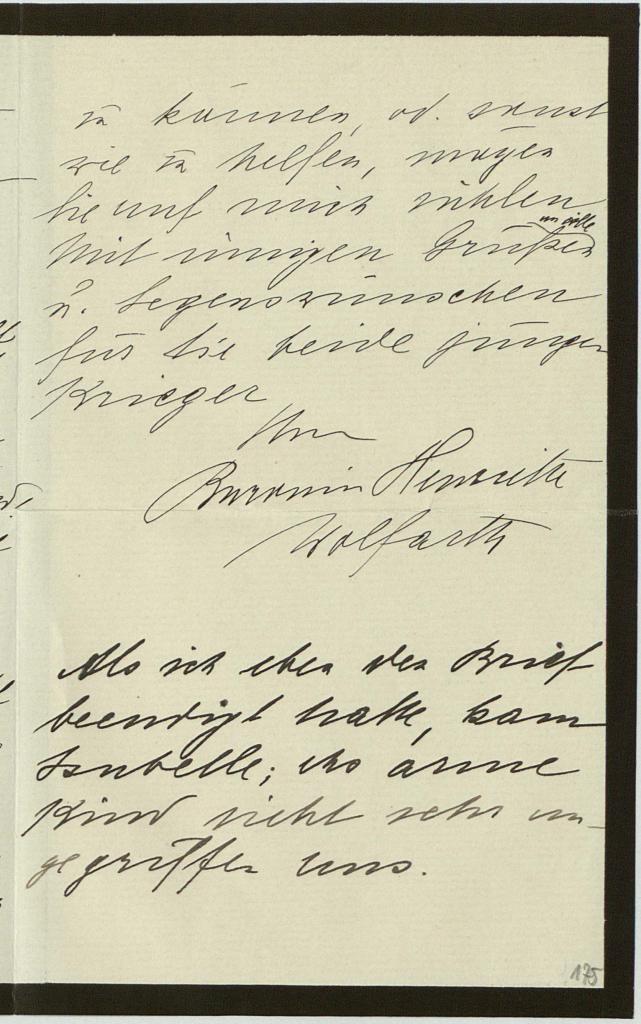 zu können, od. sonst
wie zu helfen, mögen
Sie auf mich zählen
Mit innigen Grüßen an alle
u. Segenswünschen
für die beide jungen
Krieger
Ihre
Baronin Henriette
Wolfarth
Als ich eben den Brief
beendigt hatte, kam
Isabelle; das arme
Kind sieht sehr an-
gegriffen aus.
175